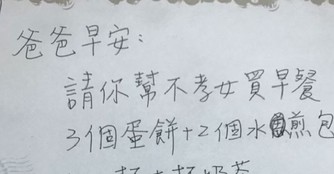 爸爸早安：
請你幫不孝女買早餐
3個蛋餅+2個水煎包